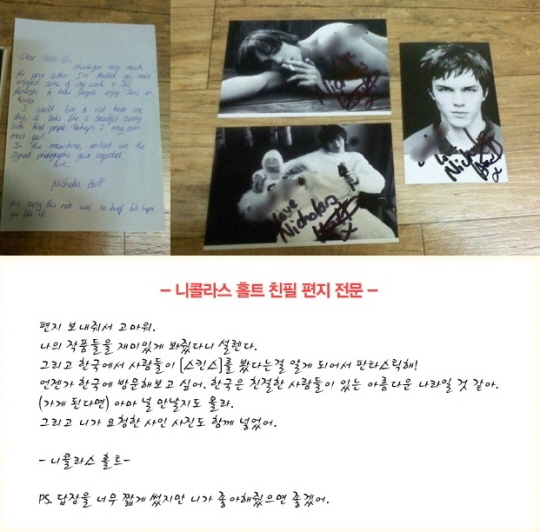 Dear
Thankyou very much
for your letter. I'm thrilled you have
enjoyed some of my work & it's
fantastic to hear people enjoy Skins in
Korea.
I would love to visit Korea one
day, it looks like a beautiful country
with kind people. Perhaps I may even
meet you!
In the mean-time, enclosed are the
signed photographs you requested.
Love,
Nicholas Hoult
P.S. Sorry this note was so brief but hope
you like it.
Love
Nicholas
Hoult
x
love
Nicholas
Hoult
x
Love
Nicholas
Hoult
x
– 니콜라스 홀트 친필 편지 전문 –
편지 보내줘서 고마워.
나의 작품들을 재미있게 봐줬다니 설렌다.
그리고 한국에서 사람들이 [스킨스]를 봤다는걸 알게 되어서 판타스틱해!
언젠가 한국에 방문해보고 싶어. 한국은 친절한 사람들이 있는 아름다운 나라일 것 같아.
(가게 된다면) 아마 널 만날지도 몰라.
그리고 니가 요청한 사인 사진도 함께 넣었어.
- 니콜라스 홀트-
PS. 답장을 너무 짧게 썼지만 니가 좋아해줬으면 좋겠어.